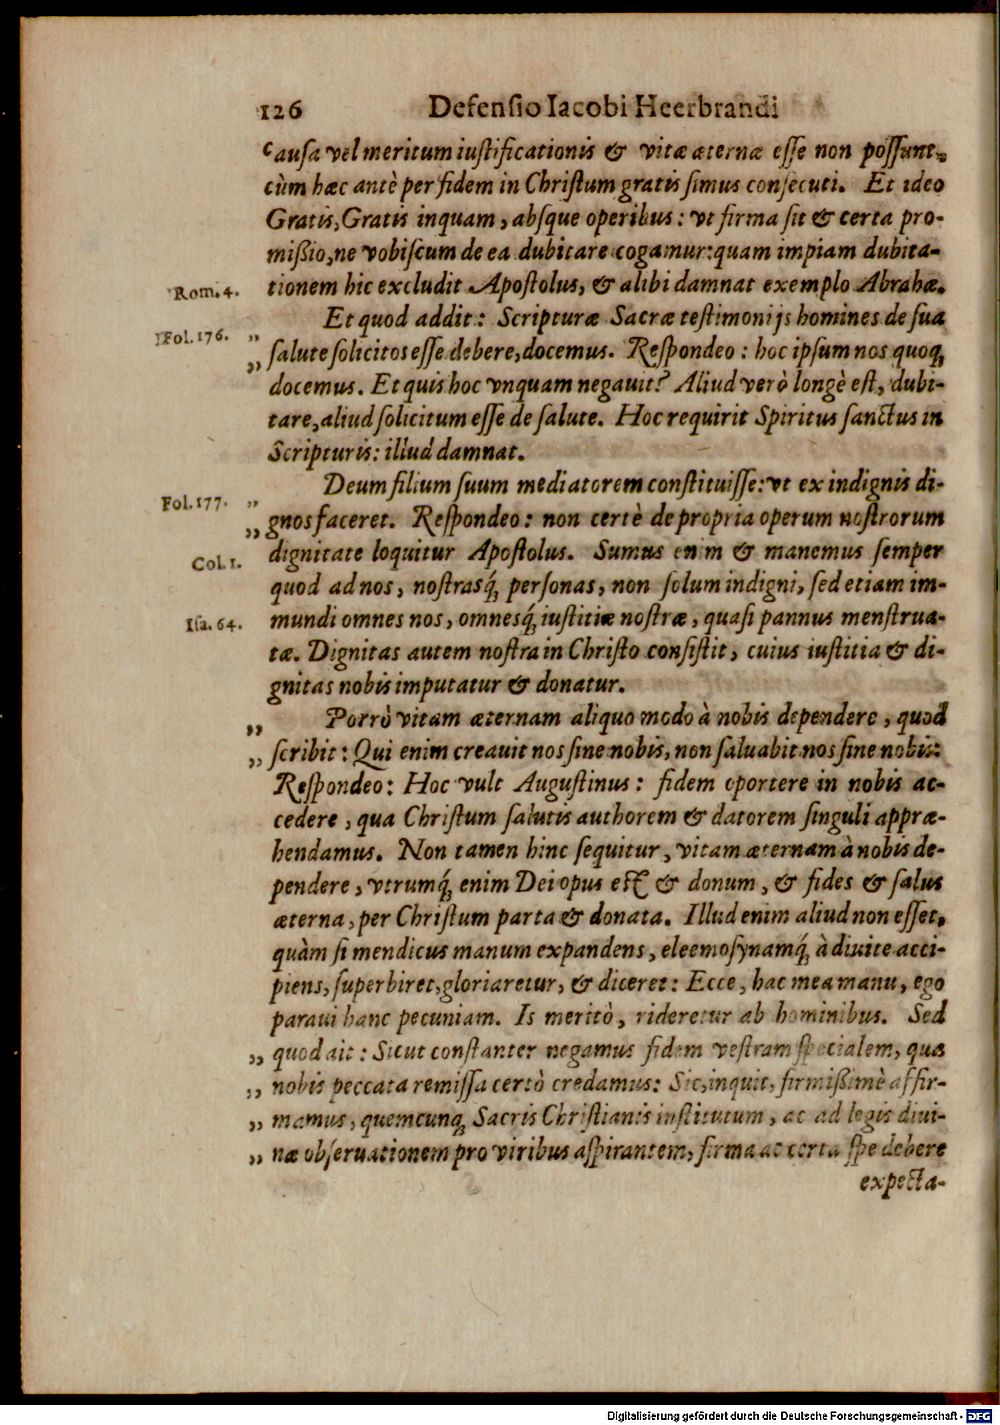 126 Defensio Iacobi Heerbrandi
causa vel meritum iustificationis & vitæ æternæ esse non possunt,
cùm hæc antè per fidem in Christum gratis simus consecuti. Et ideo
Gratis, Gratis inquam, absque operibus: vt firma sit & certa pro-
missio, ne vobiscum de ea dubitare cogamur: quam impiam dubita-
Rom. 4. tionem hic excludit Apostolus, & alibi damnat exemplo Abrahæ.
Et quod addit: Scripturæ Sacræ testimonijs homines de sua
Fol. 176. „
„ salute solicitos esse debere, docemus. Respondeo: hoc ipsum nos quoq;
docemus. Et quis hoc vnquam negauit? Aliud verò longè est, dubi-
tare, aliud solicitum esse de salute. Hoc requirit Spiritus sanctus in
Scripturis: illud damnat.
Deum filium suum mediatorem constituisse: vt ex indignis di-
Fol. 177. „
„ gnos faceret. Respondeo: non certè de propria operum nostrorum
dignitate loquitur Apostolus. Sumus enim & manemus semper
Col. 1.
quod ad nos, nostrasq́; personas, non solum indigni, sed etiam im-
Isa. 64. mundi omnes nos, omnesq́; iustitiæ nostræ, quasi pannus menstrua-
tæ. Dignitas autem nostra in Christo consistit, cuius iustitia & di-
gnitas nobis imputatur & donatur.
„ Porrò vitam æternam aliquo modo à nobis dependere, quod
„ scribit: Qui enim creauit nos sine nobis, non saluabit nos sine nobis:
Respondeo: Hoc vult Augustinus: fidem oportere in nobis ac-
cedere, qua Christum salutis authorem & datorem singuli appræ-
hendamus. Non tamen hinc sequitur, vitam æternam à nobis de-
pendere, vtrumq́; enim Dei opus est & donum, & fides & salus
æterna, per Christum parta & donata. Illud enim aliud non esset,
quàm si mendicus manum expandens, eleemosynamq́; à diuite acci-
piens, superbiret, gloriaretur, & diceret: Ecce, hac mea manu, ego
paraui hanc pecuniam. Is meritò, rideretur ab hominibus. Sed
„ quod ait: Sicut constanter negamus fidem vestram specialem, qua
„ nobis peccata remissa certò credamus: Sic, inquit, firmissimè affir-
„ mamus, quemcunq; Sacris Christianis institutum, ac ad legis diui-
„ næ obseruationem pro viribus aspirantem, firma ac certa spe debere
expecta-
Digitalisierung gefördert durch die Deutsche Forschungsgemeinschaft - DFG